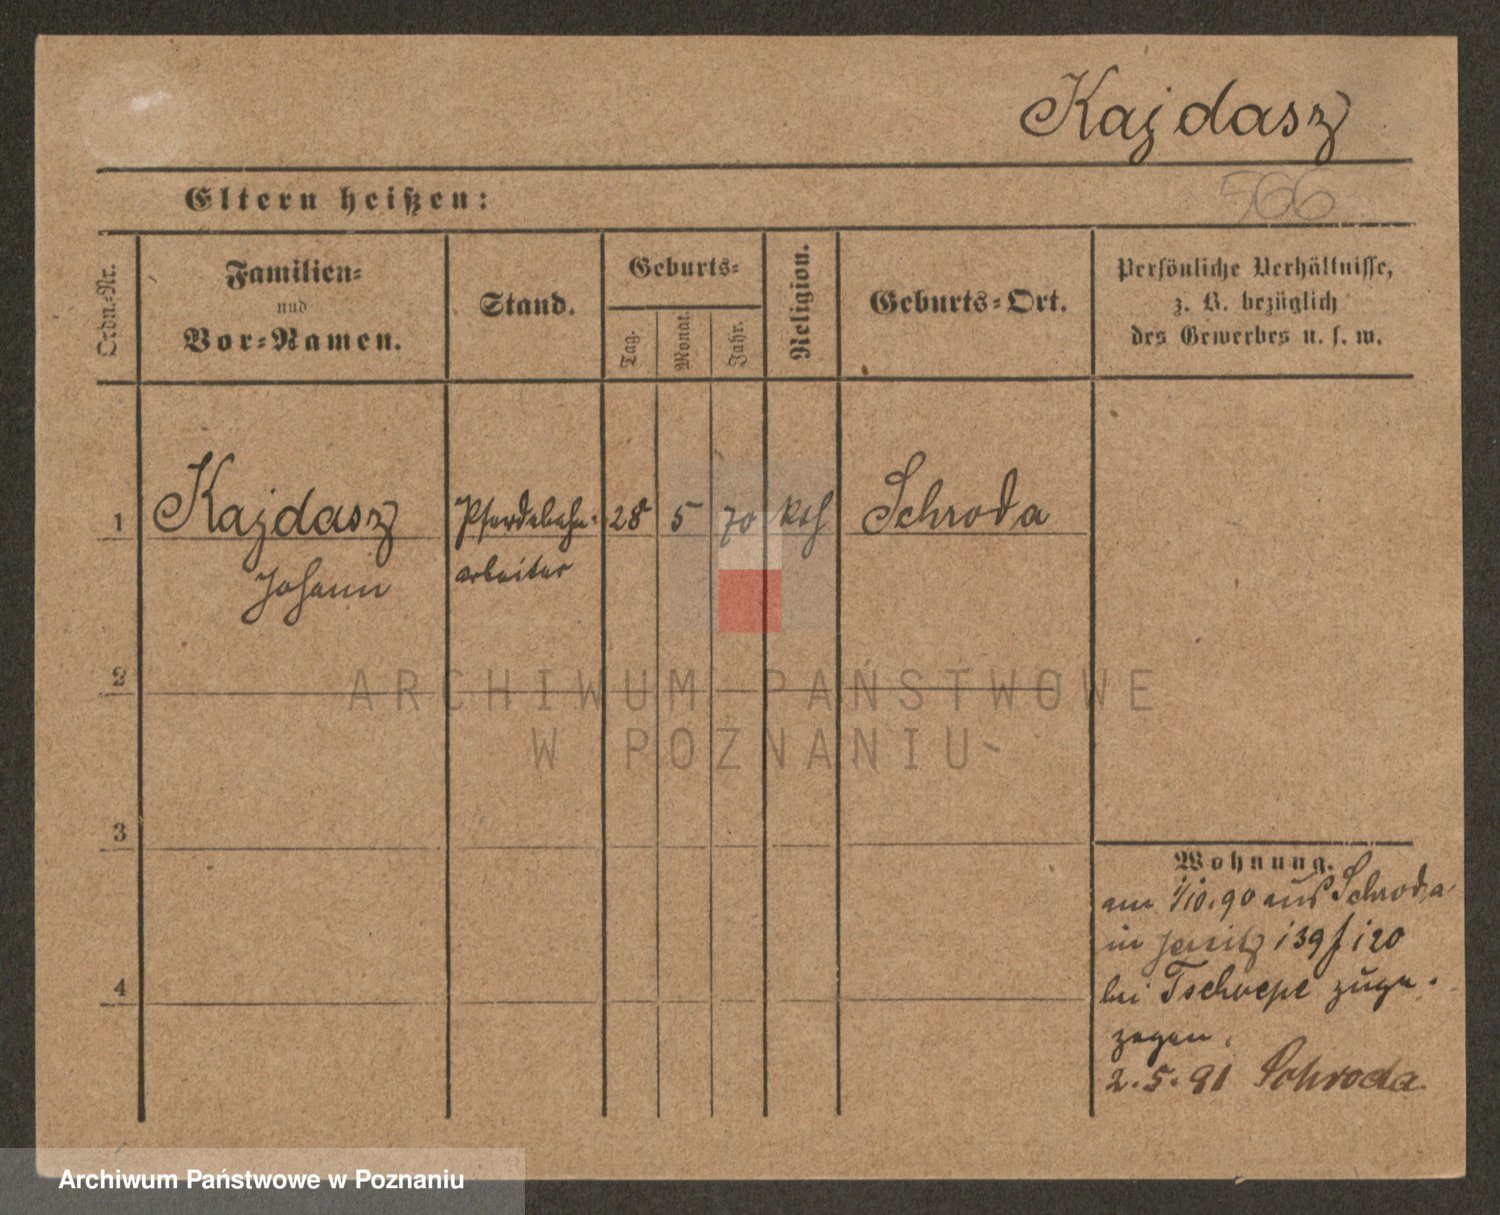 Kajdasz
Eltern heißen:
566
Ordn.-Nr.
Familien-
und
Vor-Namen.
Stand.
Geburts-
Tag.
Monat.
Jahr.
Religion.
Geburts-Ort.
Persönliche Verhältnisse,
z. B. bezüglich
des Gewerbes u. s. w.
1 Kajdasz Pferdebahn- 28 5 70 kth Schroda
Johann arbeiter
2
ARCHIWUM PAŃSTWOWE
W POZNANIU
3
Wohnung.
am 1/10.90 aus Schroda
in Jersitz 139 f 120
bei Tschoepe zuge-
4
zogen.
2.5.91 Schroda
Archiwum Państwowe w Poznaniu